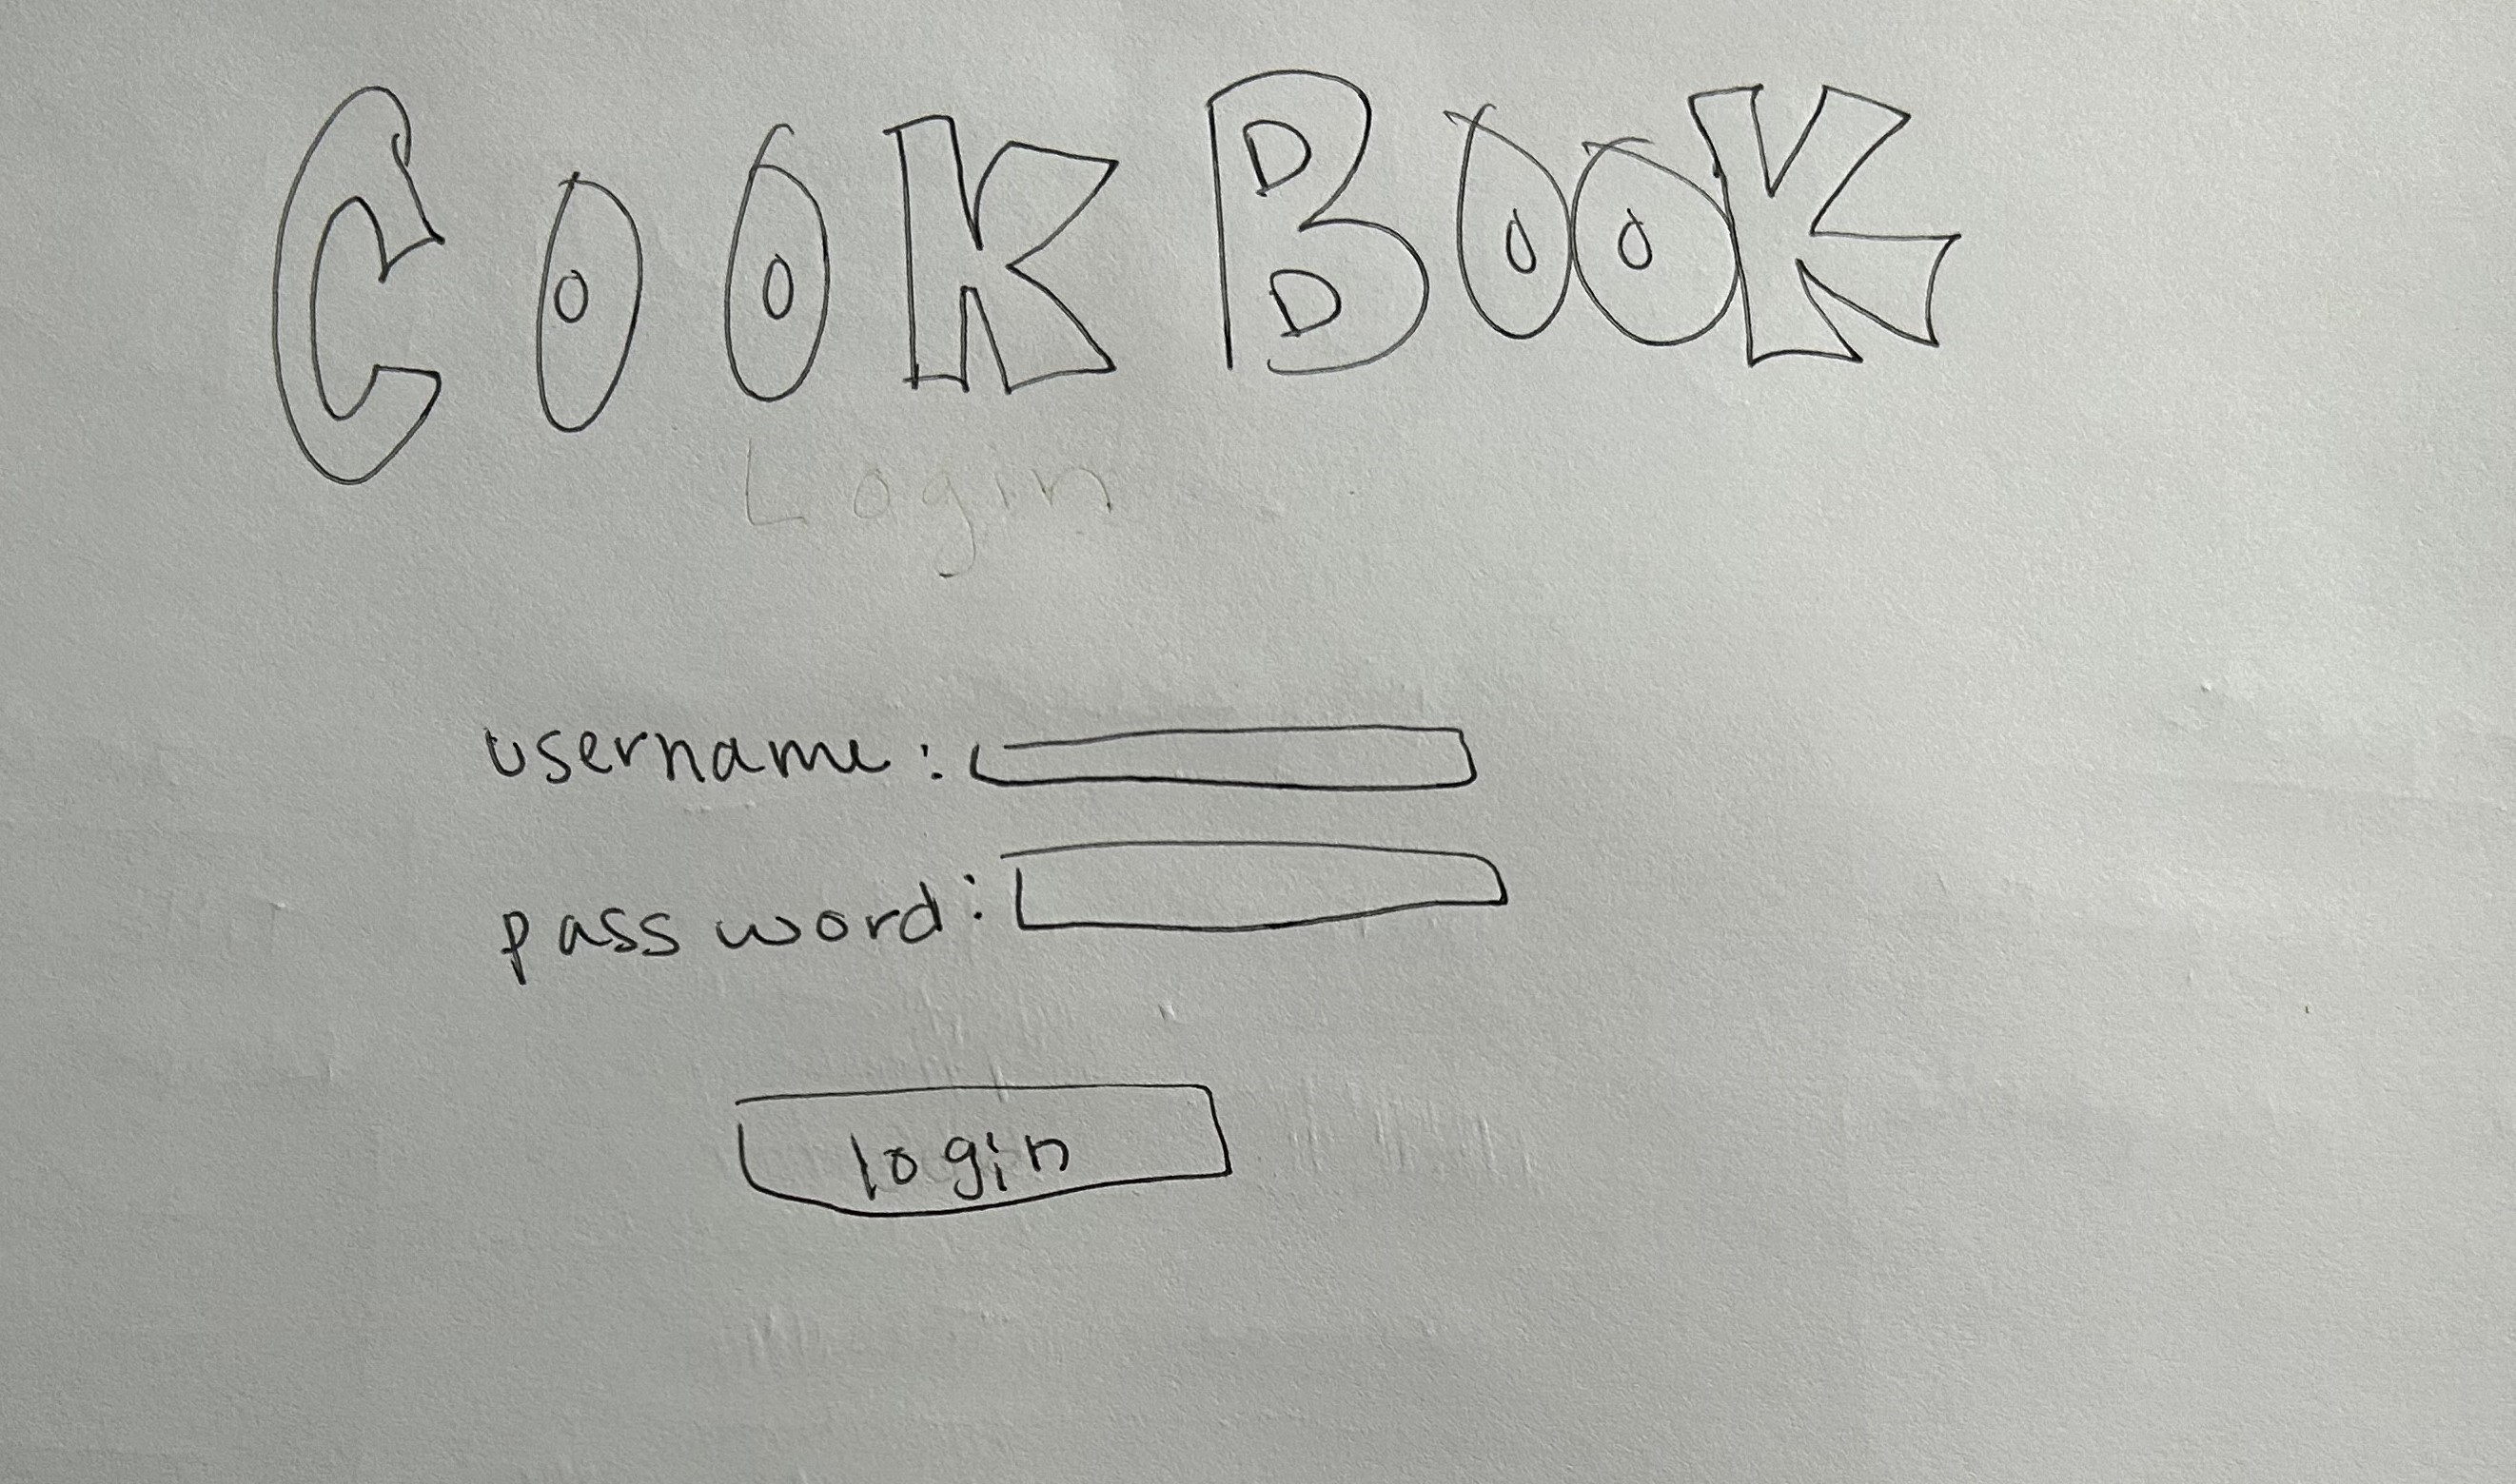 COOK BOOK
Login
username:
password:
login